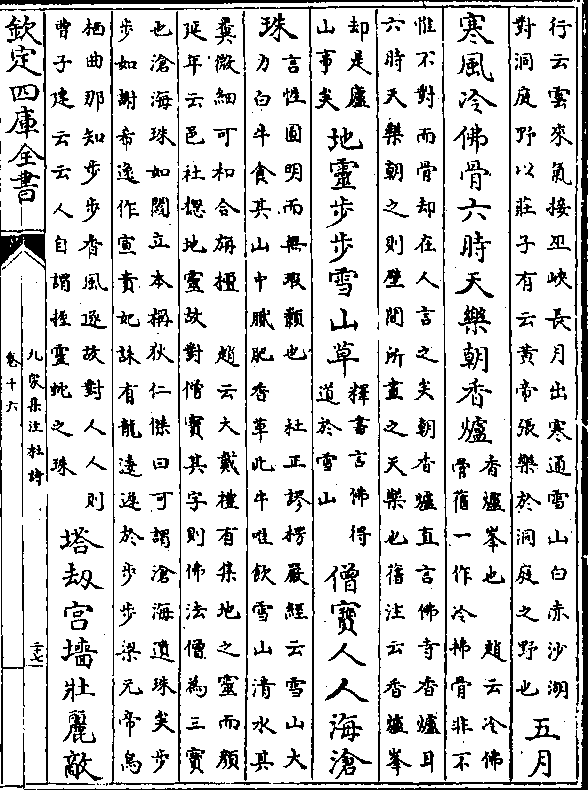 行云雲來氣接巫峽長月出寒通雪山白赤沙湖
對洞庭野以莊子有云黄帝張樂於洞庭之野也
五月
寒風冷佛骨六時天樂朝香爐
香爐峯也　趙云冷佛
骨舊一作冷拂骨非不
惟不對而骨却在人言之矣朝香爐直言佛寺香爐耳
六時天樂朝之則壁間所畫之天樂也舊注云香爐峯
却是廬
山事矣
地靈步步雪山草
釋書言佛得
道於雪山
僧寶人人海滄
珠
言性圓明而無瑕纇也　杜正謬楞嚴經云雪山大
力白牛食其山中膩肥香草此牛唯飲雪山清水其
糞微細可和合旃檀　趙云大戴禮有集地之靈而顏
延年云邑社揔地靈故對僧寶其字則佛法僧為三寶
也滄海珠如閻立本稱狄仁傑曰可謂滄海遺珠矣步
步如謝希逸作宣貴妃誄有龍逶遲於步步梁元帝烏
栖曲那知步步香風逐故對人人則
曹子建云云人自謂握靈蛇之珠
塔刼宫墻壯麗敵
欽定四庫全書
九家集注杜詩
卷十六
二十七